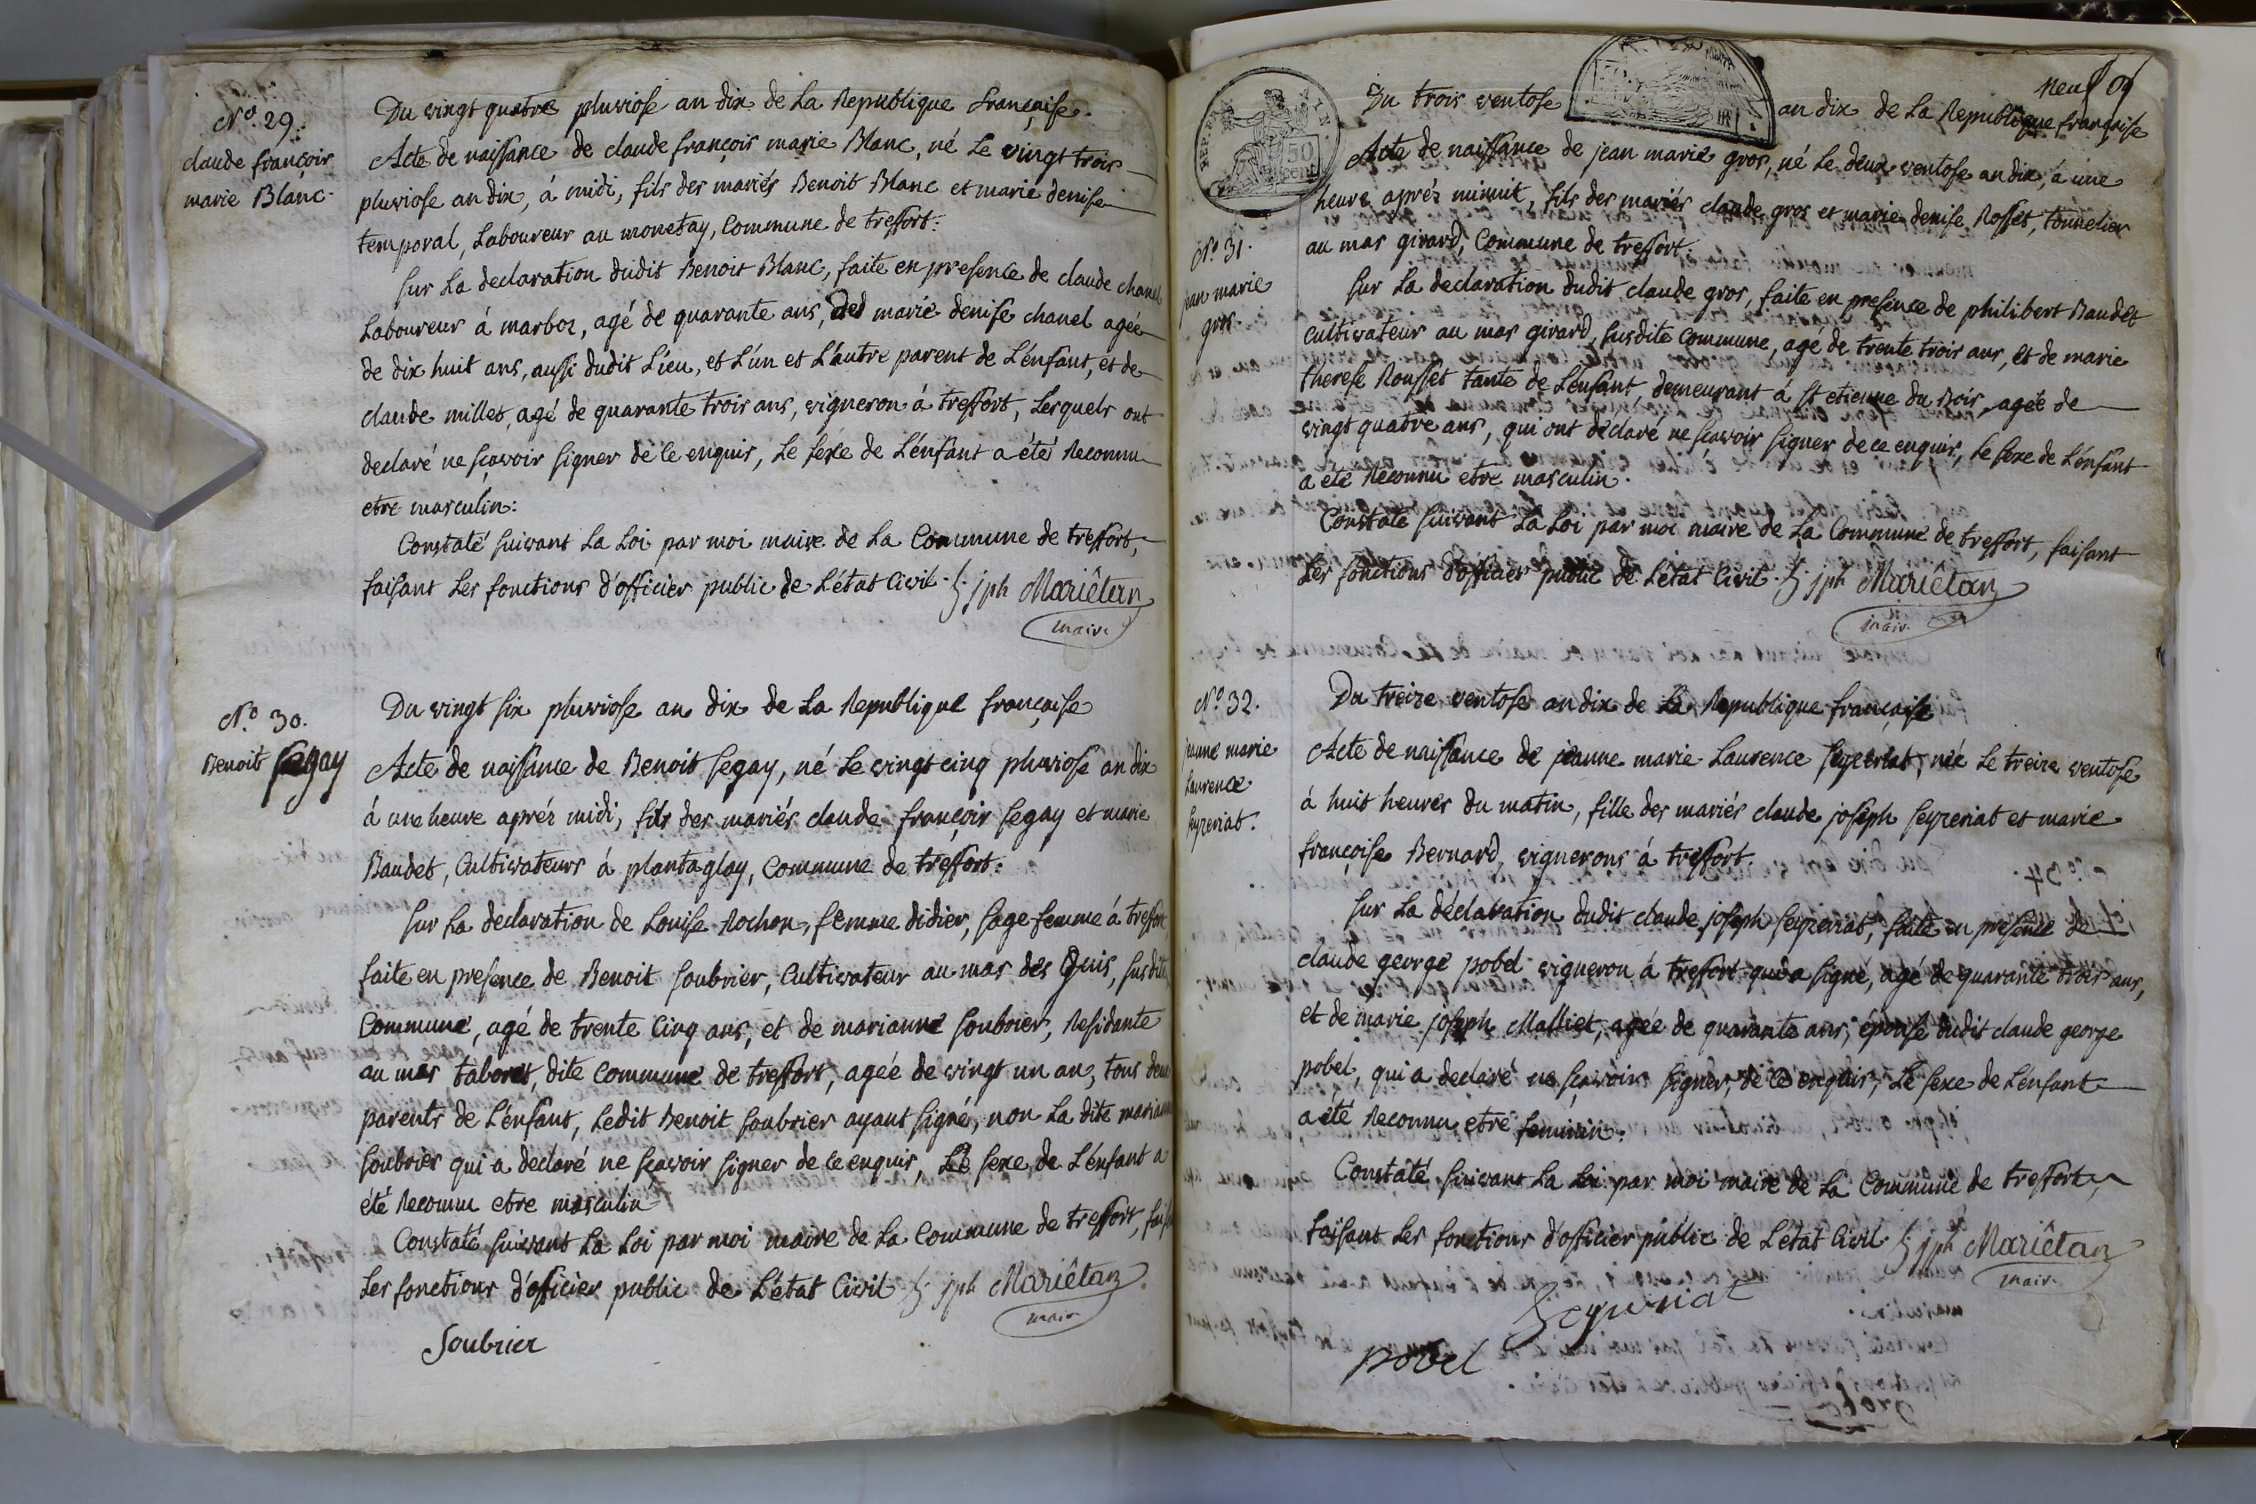 N.o 29.
claude françois
marie Blanc.
Du vingt quatre pluviose an dix de La Republique française.
Acte de naissance de claude françois marie Blanc, né Le vingt trois
pluviose an dix, à midi, fils des mariés Benoit Blanc et marie denise
temporal, Laboureur au monetay, Commune de treffort.
Sur La declaration dudit Benoit Blanc, faite en presence de claude chanel
Laboureur à marboz, agé de quarante ans, marie denise chanel agée
de dix huit ans, aussi dudit Lieu, et L'un et L'autre parent de L'enfant, et de
claude millet, agé de quarante trois ans, vigneron à treffort, Lesquels ont
declaré ne sçavoir signer de ce enquis, Le sexe de L'enfant a été Reconnu
etre masculin:
Constaté suivant La Loi par moi maire de La Commune de treffort,
faisant Les fonctions d'officier public de L'état Civil. jph Mariêtan
maire
N.o 30.
Benoit Segay
Du vingt six pluviose an dix de La Republique française
Acte de naissance de Benoit Segay, né Le vingt cinq pluviose an dix
à une heure aprés midi, fils des mariés claude françois Segay et marie
Baudet, Cultivateurs à plantaglay, Commune de treffort:
Sur La declaration de Louise Rochon, femme didier, sage femme à treffort
faite en presence de Benoit Soubrier, Cultivateur au mas des Guis, susdite
Commune, agé de trente Cinq ans, et de marianne Soubrier, Residante
au mas taboret, dite Commune de treffort, agée de vingt un an, tous deux
parents de L'enfant, Ledit Benoit Soubrier ayant signé, non La dite marianne
Soubrier qui a declaré ne sçavoir signer de ce enquis, Le sexe de L'enfant a
été Reconnu etre masculin
Constaté suivant La Loi par moi maire de La Commune de treffort, fais
Les fonctions d'officier public de L'état Civil jph Mariêtan
maire
Soubrier
neuf 9
REP. FRA.
50
cent
Du trois ventose an dix de La Republique française
N.o 31.
jean marie
gros.
Acte de naissance de jean marie gros, né Le deux ventose an dix, à une
heure aprés minuit, fils des mariés claude gros et marie denise Rosset, tonnelier
au mas girard, Commune de treffort.
Sur La declaration dudit claude gros, faite en presence de philibert Baudet
cultivateur au mas girard, susdite Commune, agé de trente trois ans, et de marie
therese Rousset tante de L'enfant, demeurant à St etienne du Bois, agée de
vingt quatre ans, qui ont declaré ne sçavoir signer de ce enquis, Le sexe de L'énfant
a été Reconnu etre masculin.
Constaté suivant La Loi par moi maire de La Commune de treffort, faisant
Les fonctions d'officier public de L'état Civil. jph Mariêtan
maire
N.o 32.
jeanne marie
Laurence
Seyzeriat.
Du treize ventose an dix de La Republique française
Acte de naissance de jeanne marie Laurence Seyzeriat, née Le treize ventose
à huit heures du matin, fille des mariés claude joseph Seyzeriat et marie
françoise Bernard, vignerons à treffort.
Sur La déclaration dudit claude joseph Seyzeriat, faite en présence de
claude george pobel vigneron à treffort qui a signé, agé de quarante trois ans,
et de marie joseph Malliet, agée de quarante ans, épouse dudit claude george
pobel, qui a declaré ne sçavoir signer, de ce enquis, Le sexe de L'énfant
a été Reconnu etre feminin.
Constaté suivant La Loi par moi maire de La Commune de treffort,
faisant Les fonctions d'officier public de L'état Civil. jph Mariêtan
maire
Seyzeriat
pobel